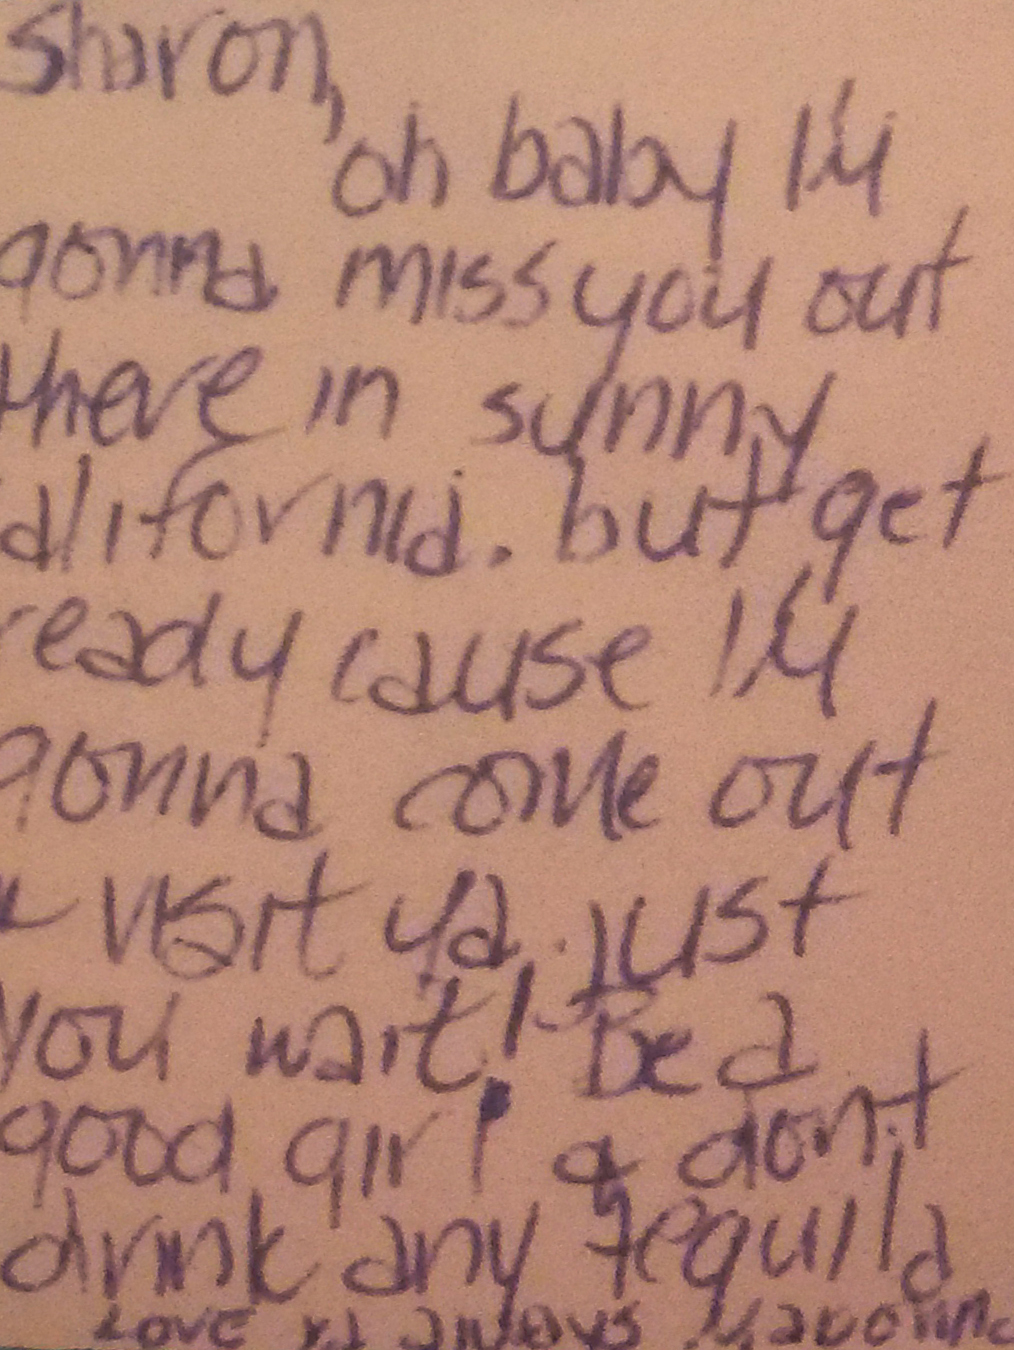 Sharon,
oh baby I'm
gonna miss you out
there in sunny
alifornia. but get
ready cause I'm
gonna come out
& visit ya. just
you wait! Be a
good girl & don't
drink any tequila
Love ya always